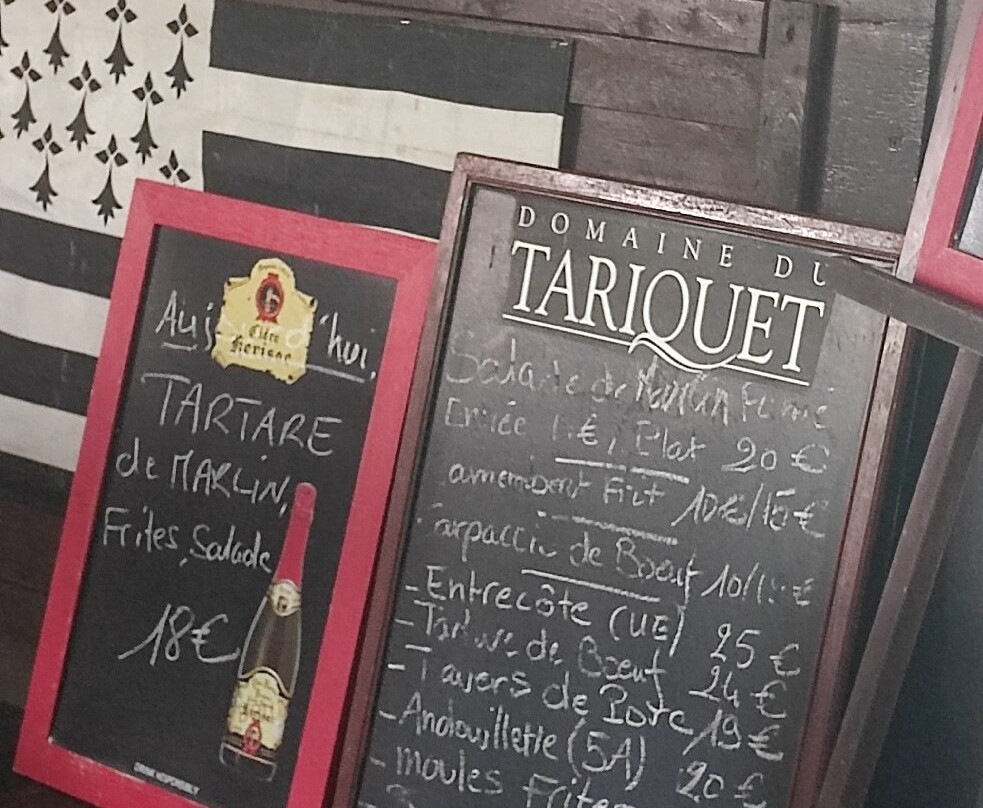 Aujourd'hui,
Cidre
Kerisac
TARTARE
de MARLIN,
Frites, Salade
18€
DRINK RESPONSIBLY
DOMAINE DU
TARIQUET
Salade de Marlin Fumé
Plat 20 €
amembert Frit 10€/15€
arpaccio de Boeuf 10/ €
- Entrecôte (UE) 25 €
- de Boeuf 24 €
- Travers de Porc 19 €
- Andouillette (5A) 20 €
- Moules Frites